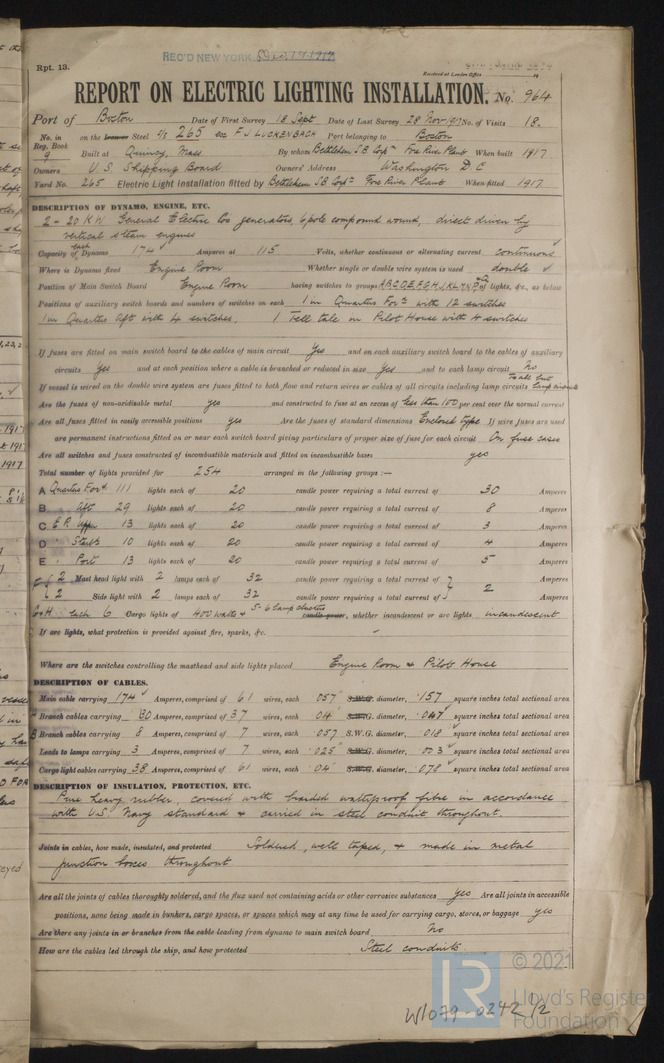 REC'D NEW YORK Dec 19 1917
Rpt. 13.
Received at London Office
REPORT ON ELECTRIC LIGHTING INSTALLATION. No. 964
Port of Boston Date of First Survey 18 Sept Date of Last Survey 28 Nov 1917 No. of Visits 18.
No. in Reg. Book 9 on the Steel S/S 265 F J LUCKENBACH Port belonging to Boston
Built at Quincy, Mass By whom Bethlehem S B Corpn Fore River Plant When built 1917
Owners U S Shipping Board Owners' Address Washington D C
Yard No. 265 Electric Light installation fitted by Bethlehem S B Corpn Fore River Plant When fitted 1917
DESCRIPTION OF DYNAMO, ENGINE, ETC.
2 - 20 KW General Electric Co's generators, 6 pole compound wound, direct driven by
vertical steam engines
Capacity of each Dynamo 174 Amperes at 115 Volts, whether continuous or alternating current continuous
Where is Dynamo fixed Engine Room Whether single or double wire system is used double
Position of Main Switch Board Engine Room having switches to groups of lights, &c., as below
Positions of auxiliary switch boards and numbers of switches on each 1 in Quarters Ford with 12 switches
1 in Quarters Aft with 4 switches, 1 Tell tale in Pilot House with 4 switches
If fuses are fitted on main switch board to the cables of main circuit Yes and on each auxiliary switch board to the cables of auxiliary
circuits Yes and at each position where a cable is branched or reduced in size Yes and to each lamp circuit No
If vessel is wired on the double wire system are fuses fitted to both flow and return wires or cables of all circuits including lamp circuits to all but lamp circuits
Are the fuses of non-oxidizable metal yes and constructed to fuse at an excess of less than 100 per cent over the normal current
Are all fuses fitted in easily accessible positions yes Are the fuses of standard dimensions Enclosed type If wire fuses are used
are permanent instructions fitted on or near each switch board giving particulars of proper size of fuse for each circuit On fuse cases
Are all switches and fuses constructed of incombustible materials and fitted on incombustible bases yes
Total number of lights provided for 254 arranged in the following groups :—
A Quarters Ford 111 lights each of 20 candle power requiring a total current of 30 Amperes
B " Aft 29 lights each of 20 candle power requiring a total current of 8 Amperes
C E R Upper 13 lights each of 20 candle power requiring a total current of 3 Amperes
D " Starb'd 10 lights each of 20 candle power requiring a total current of 4 Amperes
E " Port 13 lights each of 20 candle power requiring a total current of 5 Amperes
2 Mast head light with 2 lamps each of 32 candle power requiring a total current of
2 Side light with 2 lamps each of 32 candle power requiring a total current of 2 Amperes
G & H each 6 Cargo lights of 400 watts & 5-6 lamp clusters candle power, whether incandescent or arc lights incandescent
If arc lights, what protection is provided against fire, sparks, &c. -
Where are the switches controlling the masthead and side lights placed Engine Room & Pilot House
DESCRIPTION OF CABLES.
Main cable carrying 174 Amperes, comprised of 61 wires, each .057 S.W.G. diameter, .157 square inches total sectional area
Branch cables carrying 30 Amperes, comprised of 37 wires, each .04 S.W.G. diameter, .047 square inches total sectional area
B Branch cables carrying 8 Amperes, comprised of 7 wires, each .057 S.W.G. diameter, .018 square inches total sectional area
Leads to lamps carrying 3 Amperes, comprised of 7 wires, each .025 S.W.G. diameter, .003 square inches total sectional area
Cargo light cables carrying 38 Amperes, comprised of 61 wires, each .04 S.W.G. diameter, .078 square inches total sectional area
DESCRIPTION OF INSULATION, PROTECTION, ETC.
Pure heavy rubber, covered with braided waterproof fibre in accordance
with U.S. Navy standard & carried in steel conduit throughout.
Joints in cables, how made, insulated, and protected Soldered, well taped, & made in metal
junction boxes throughout
Are all the joints of cables thoroughly soldered, and the flux used not containing acids or other corrosive substances yes Are all joints in accessible
positions, none being made in bunkers, cargo spaces, or spaces which may at any time be used for carrying cargo, stores, or baggage yes
Are there any joints in or branches from the cable leading from dynamo to main switch board No
How are the cables led through the ship, and how protected Steel conduits.
LR
© 2021
Lloyd's Register
Foundation
W1079-0242 1/2